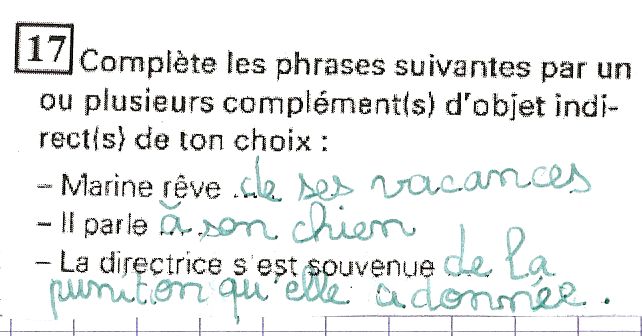 17 Complète les phrases suivantes par un
ou plusieurs complément(s) d'objet indi-
rect(s) de ton choix :
– Marine rêve ... de ses vacances
– Il parle ... à son chien
– La directrice s'est souvenue de la
puniton qu'elle a donnée .